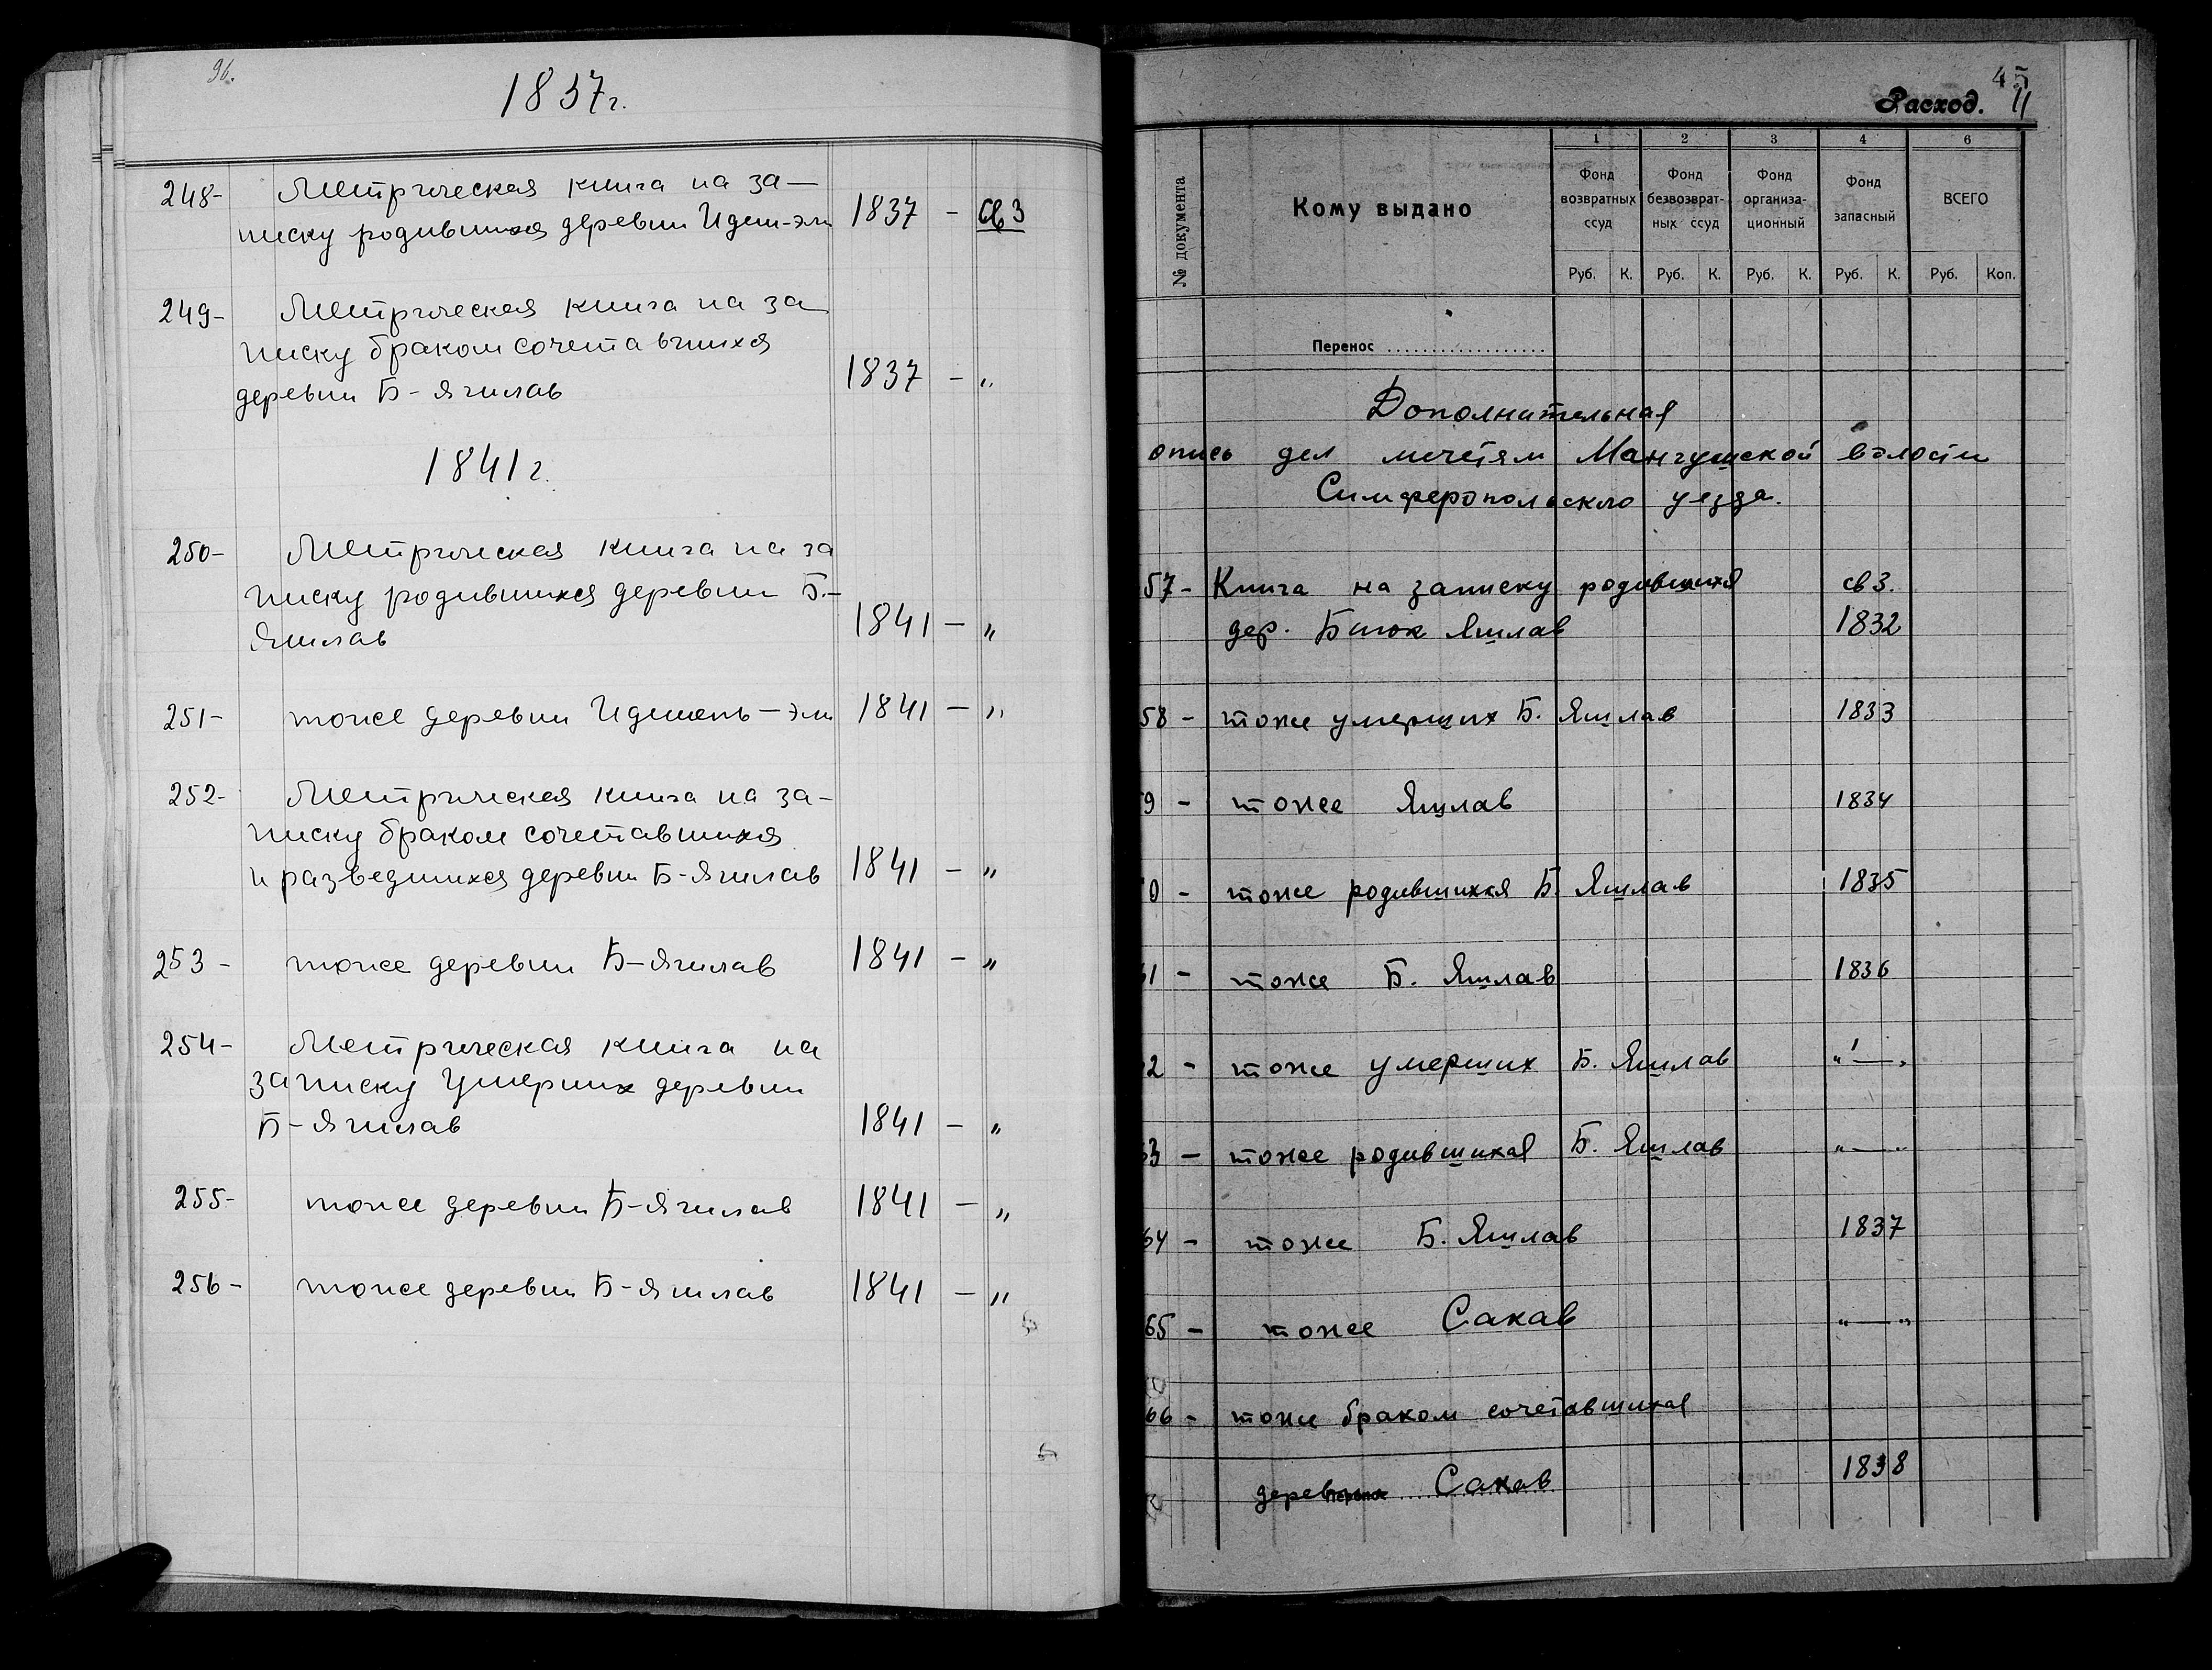 96.
1837г.
248- Метрическая книга на за-
писку родившихся деревни Идеш-эли 1837 - св 3
249- Метрическая книга на за
писку браком сочетавшихся
деревни Б-Яшлав 1837 - "
1841 г.
250- Метрическая книга на за
писку родившихся деревни Б.-
Яшлав 1841 - "
251- тоже деревни Идешель-эли 1841 - "
252- Метрическая книга на за-
писку браком сочетавшихся
и разведшихся деревни Б-Яшлав 1841 - "
253- тоже деревни Б-Яшлав 1841 - "
254- Метрическая книга на
записку умерших деревни
Б-Яшлав 1841 - "
255- тоже деревни Б-Яшлав 1841 - "
256- тоже деревни Б-Яшлав 1841 - "
45
Расход. 11
№ документа
Кому выдано
1 2 3 4 6
Фонд возвратных ссуд
Фонд безвозврат-ных ссуд
Фонд организа-ционный
Фонд запасный
ВСЕГО
Руб. К. Руб. К. Руб. К. Руб. К. Руб. Коп.
Перенос
Дополнительная
опись дел мечетям Мангушской волости
Симферопольского уезда.
57- Книга на записку родившихся св 3.
дер. Биюк Яшлав 1832
58- тоже умерших Б. Яшлав 1833
9- тоже Яшлав 1834
0- тоже родившихся Б. Яшлав 1835
61- тоже Б. Яшлав 1836
2- тоже умерших Б. Яшлав "—"
63- тоже родившихся Б. Яшлав "—"
64- тоже Б. Яшлав 1837
65- тоже Сакав "—"
66- тоже браком сочетавшихся
деревни Сакав 1838